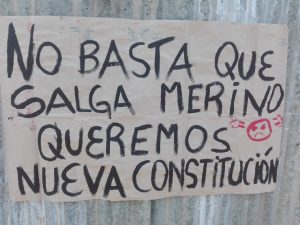 NO BASTA QUE
SALGA MERINO
QUEREMOS
NUEVA CONSTITUCIÓN